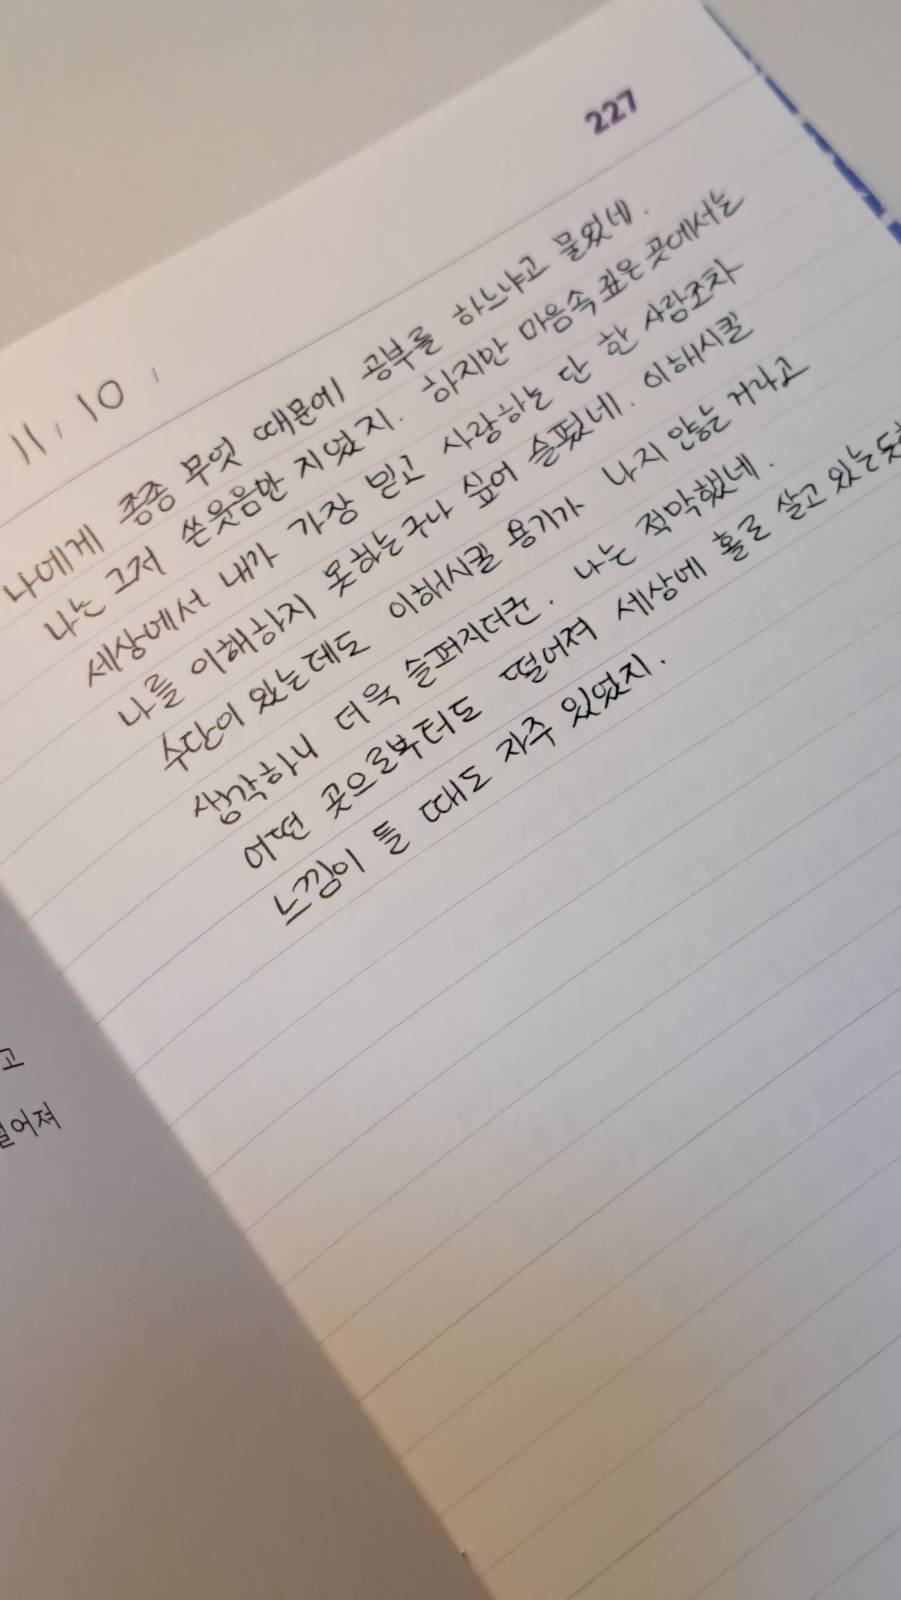 227
11. 10.
나에게 종종 무엇 때문에 공부를 하느냐고 물었네.
나는 그저 쓴웃음만 지었지. 하지만 마음속 깊은 곳에서는
세상에서 내가 가장 믿고 사랑하는 단 한 사람조차
나를 이해하지 못하는구나 싶어 슬펐네. 이해시킬
수단이 있는데도 이해시킬 용기가 나지 않는 거라고
생각하니 더욱 슬퍼지더군. 나는 적막했네.
어떤 곳으로부터도 떨어져 세상에 홀로 살고 있는듯한
느낌이 들 때도 자주 있었지.
고
떨어져